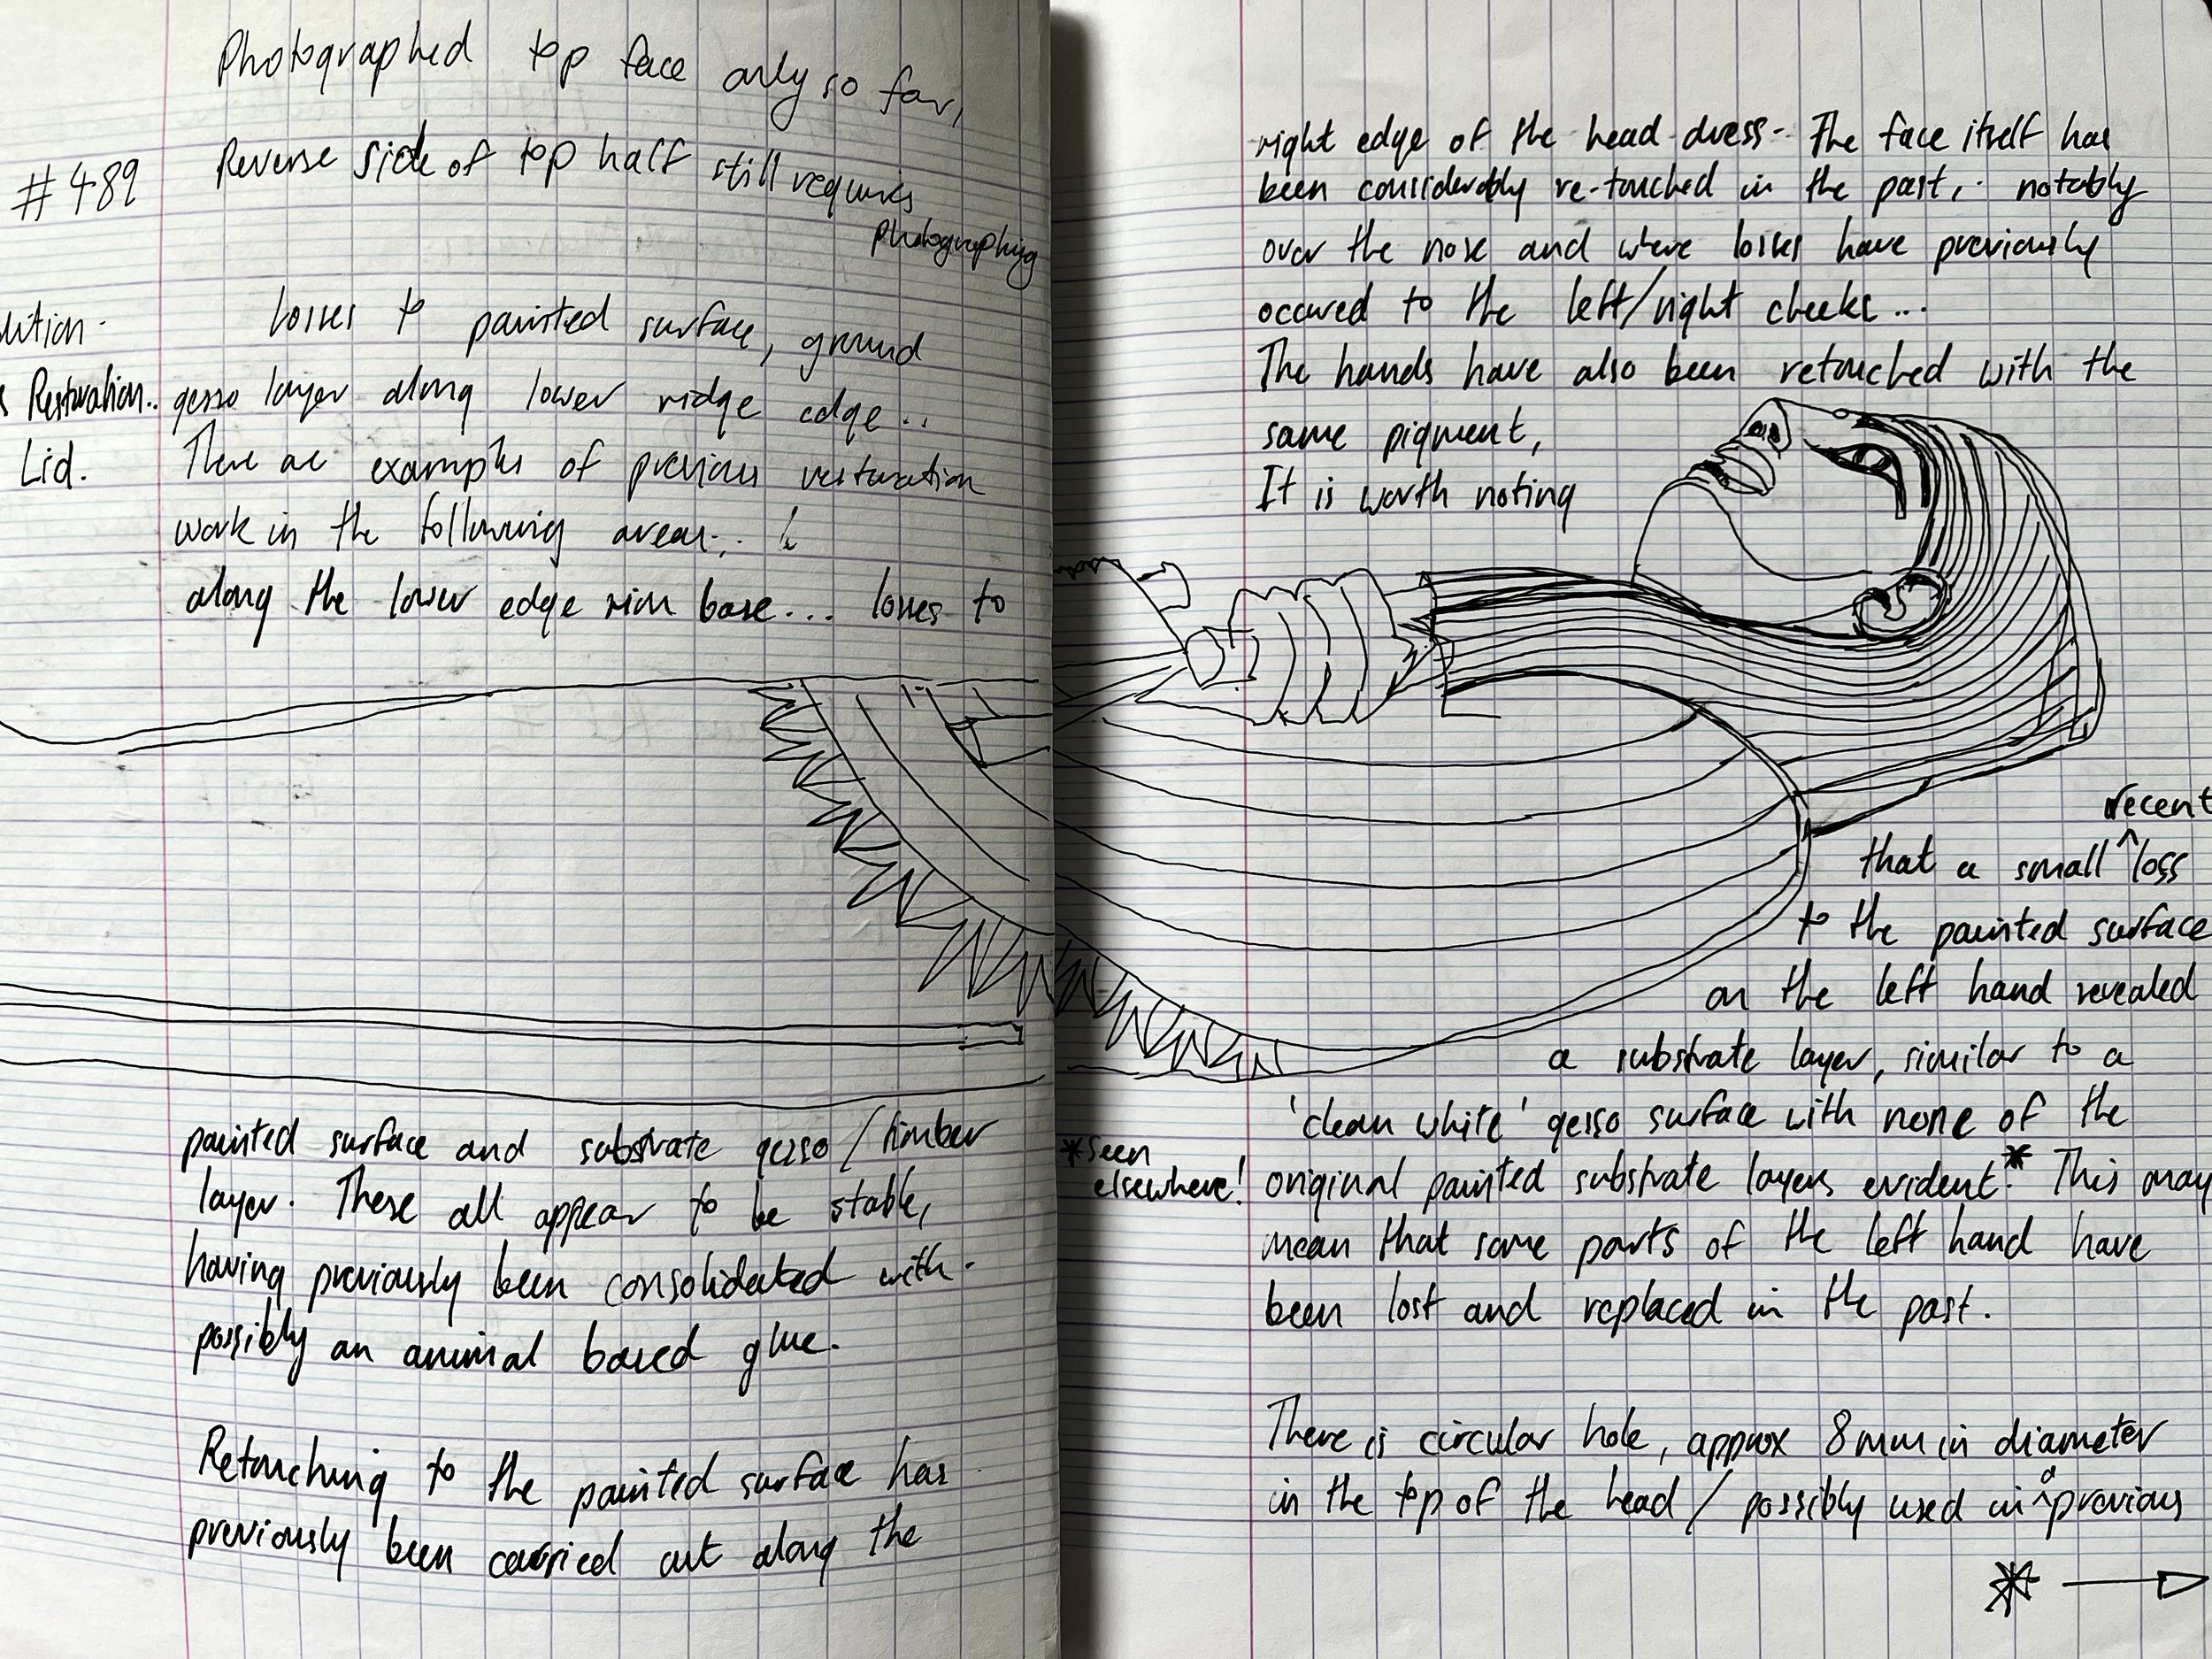 Photographed top face only so far,
#489 Reverse side of top half still requires
photographing
losses to painted surface, ground
Restoration.. gesso layer along lower ridge edge..
Lid. There are examples of previous restoration
work in the following areas:.
along the lower edge rim base... losses to
painted surface and substrate gesso / timber
layer. These all appear to be stable,
having previously been consolidated with.
possibly an animal based glue.
Retouching to the painted surface has
previously been carried out along the
right edge of the head-dress-. The face itself has
been considerably re-touched in the past,. notably
over the nose and where losses have previously
occured to the left/right cheeks...
The hands have also been retouched with the
same pigment,
It is worth noting
recent
that a small ^ loss
to the painted surface
on the left hand revealed
a substrate layer, similar to a
'clean white' gesso surface with none of the
*seen
elsewhere! original painted substrate layers evident.* This may
mean that some parts of the left hand have
been lost and replaced in the past.
There is circular hole, approx 8mm in diameter
a
in the top of the head / possibly used in ^ previous
* →